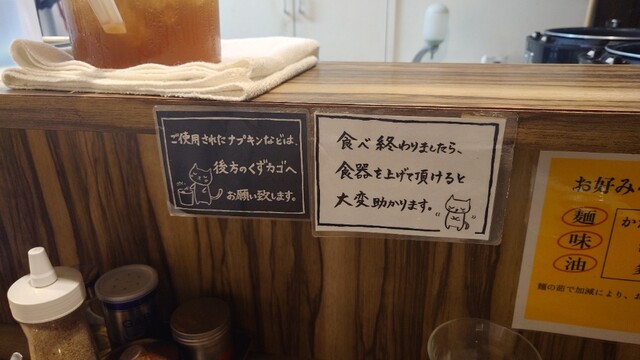 ご使用されたナプキンなどは、
後方のくずカゴへ
お願い致します。
食べ終わりましたら、
食器を上げて頂けると
大変助かります。
お好み
麺
味
油
か
麺の茹で加減により、お